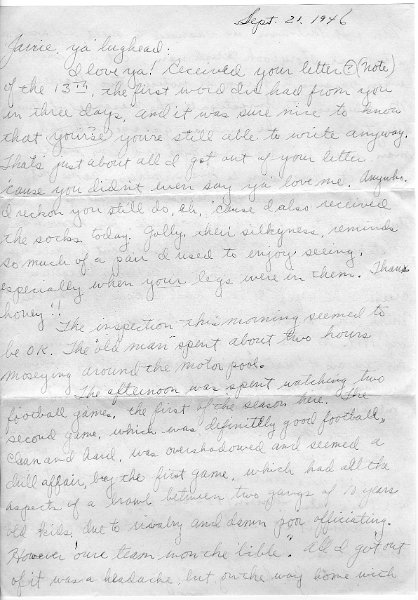 Sept. 21, 1946
ya' lughead:
I love ya! Received your letter (?) (note)
of the 13th, the first word I've had from you
in three days, and it was sure nice to know
that you're still able to write anyway.
That's just about all I got out of your letter
'cause you didn't even say ya' love me. Anyho.
I reckon you still do, eh, 'cause I also received
the socks today. Golly, their silkyness, reminds
so much of a pair I used to enjoy seeing,
especially when your legs were in them. Thanx
honey!!
The inspection this morning seemed to
be O.K. The "old man" spent about two hours
moseying around the motor pool.
The afternoon was spent watching two
football games, the first of the season here. The
second game, which was definitely good football,
clean and hard, was overshadowed and seemed a
dull affair, by the first game, which had all the
aspects of a brawl between two gangs of 10 years
old kids, due to rivalry and damn poor officiating.
However "our" team won the . All I got out
of it was a headache, but on the way home with